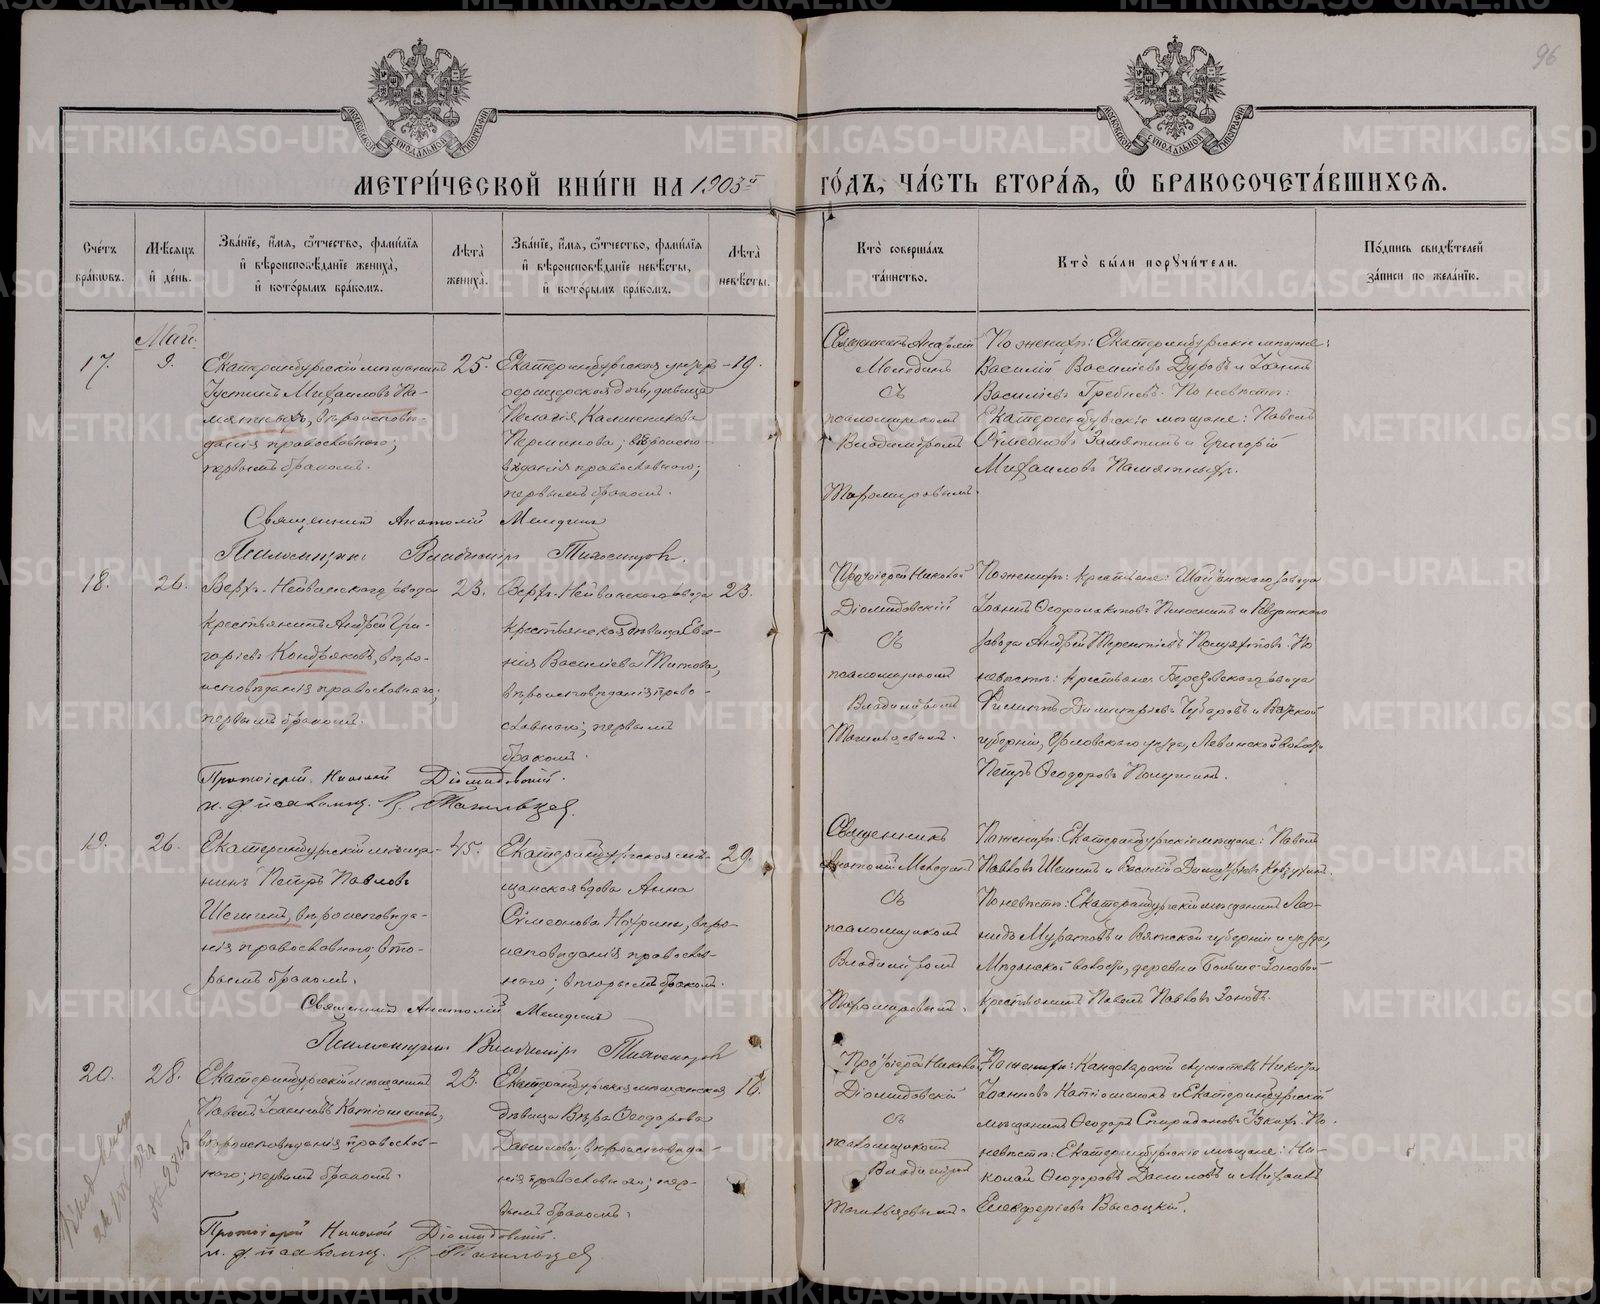 96
МЕТРИ́ЧЕСКОЙ КНИ́ГИ НА 1903й ГО́ДЪ, ЧА́СТЬ ВТОРА́Я, Ѽ БРАКОСОЧЕТА́ВШИХСЯ.
Сче́тъ бра́кѡвъ.
Мѣ́сяцъ и҆ де́нь.
Зва́нїе, и҆́мя, ѻ҆́тчество, фамилі́я и҆ вѣроисповѣ́данїе жениха̀, и҆ кото́рымъ бра́комъ.
Лѣта̀ жениха̀.
Зва́нїе, и҆́мя, ѻ҆́тчество, фамилі́я и҆ вѣроисповѣ́данїе невѣ́сты, и҆ кото́рымъ бра́комъ.
Лѣта̀ невѣ́сты.
Кто̀ соверша́лъ та́инство.
Кто̀ бы́ли порꙋчи́тели.
По́дпись свидѣ́телей за́писи по жела́нїю.
Май.
17.
9.
Екатеринбургскій мѣщанинъ
Іустинъ Михаиловъ Па-
мятныхъ, вѣроисповѣ-
данія православнаго;
первымъ бракомъ.
25.
Екатеринбургская
дочь, дѣвица
Пелагія Калинникова
Перминова; вѣроиспо-
вѣданія православнаго;
первымъ бракомъ.
19.
Священникъ Анатолій
съ
псаломщикомъ
Владиміромъ
Тихомировымъ.
По женихѣ: Екатеринбургскіе мѣщане:
Василій Васильевъ Дуровъ и Іоаннъ
Васильевъ Гребневъ. По невѣстѣ:
Екатеринбургскіе мѣщане: Павелъ
Симеоновъ Замятинъ и Григорій
Михаиловъ Памятныхъ.
Священникъ Анатолій
Псаломщикъ Владиміръ Тихомировъ.
18.
26.
Верх-Нейвинскаго завода
крестьянинъ Андрей Гри-
горіевъ Кондряковъ, вѣро-
исповѣданія православнаго;
первымъ бракомъ.
23.
Верх-Нейвинскаго завода
крестьянская дѣвица Евге-
нія Василіева Титова,
вѣроисповѣданія право-
славнаго; первымъ
бракомъ.
23.
Протоіерей Николай
Діомидовскій
съ
псаломщикомъ
Владиміромъ
Тагильцевымъ.
По женихѣ: крестьяне: Шайтанскаго завода
Іоаннъ и Ревдинскаго
завода Андрей Терентіевъ По
невѣстѣ: крестьяне: Березовскаго завода
Филиппъ Димитріевъ Чубаровъ и Вятской
губерніи, Орловскаго уѣзда, волости
Петръ Ѳеодоровъ
Протоіерей Николай Діомидовскій.
и. д. псаломщ. В. Тагильцевъ.
19.
26.
Екатеринбургскій мѣща-
нинъ Петръ Павловъ
вѣроисповѣда-
нія православнаго; вто-
рымъ бракомъ.
45.
Екатеринбургская мѣ-
щанская вдова Анна
Симеонова вѣро-
исповѣданія православ-
наго; вторымъ бракомъ.
29.
Священникъ
Анатолій
съ
псаломщикомъ
Владиміромъ
Тихомировымъ.
По женихѣ: Екатеринбургскіе мѣщане: Павелъ
Павловъ и Василій Димитріевъ
По невѣстѣ: Екатеринбургскій мѣщанинъ Лео-
нидъ Муратовъ и Вятской губерніи и уѣзда,
волости, деревни
крестьянинъ Павелъ Павловъ Зоновъ.
Священникъ Анатолій
Псаломщикъ Владиміръ Тихомировъ
20.
28.
Екатеринбургскій мѣщанинъ
Павелъ Іоанновъ Катюшенокъ,
вѣроисповѣданія православ-
наго; первымъ бракомъ.
23.
Екатеринбургская мѣщанская
дѣвица Вѣра Ѳеодорова
Данилова, вѣроисповѣда-
нія православнаго; пер-
вымъ бракомъ.
Протоіерей Николай
Діомидовскій
съ
псаломщикомъ
Владиміромъ
Тагильцевымъ.
По женихѣ: Канцелярскій служитель Никита
Іоанновъ Катюшенокъ и Екатеринбургскій
мѣщанинъ Ѳеодоръ Спиридоновъ По
невѣстѣ: Екатеринбургскіе мѣщане: Ни-
колай Ѳеодоровъ Даниловъ и Михаилъ
Елевферіевъ Высоцкій.
Протоіерей Николай Діомидовскій.
и. д. псаломщ. В. Тагильцевъ.
METRIKI.GASO-URAL.RU